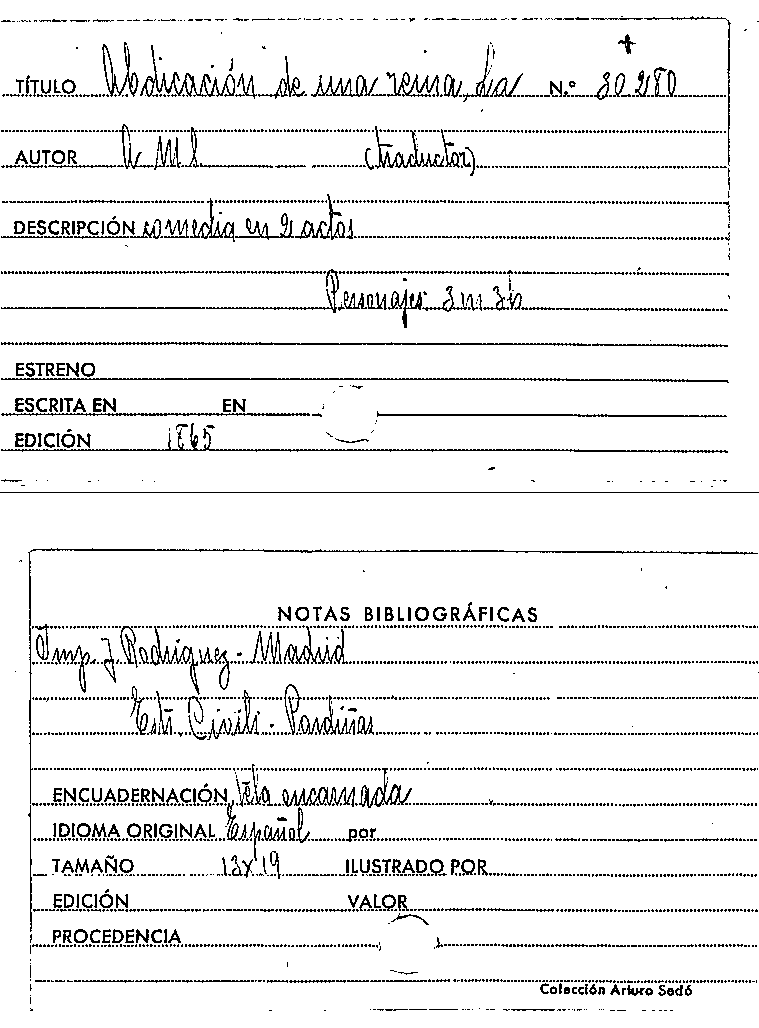 TÍTULO Abdicación de una reina, La N.º 30280
AUTOR A M L (traductor)
DESCRIPCIÓN comedia en 2 actos
Personajes 3m 3h
ESTRENO
ESCRITA EN EN
EDICIÓN 1865
NOTAS BIBLIOGRÁFICAS
Imp. J. Rodriguez - Madrid
Estr. Civili - Pardiñas
ENCUADERNACIÓN tela encarnada
IDIOMA ORIGINAL Español por
TAMAÑO 13x19 ILUSTRADO POR
EDICIÓN VALOR
PROCEDENCIA
Colección Arturo Sedó